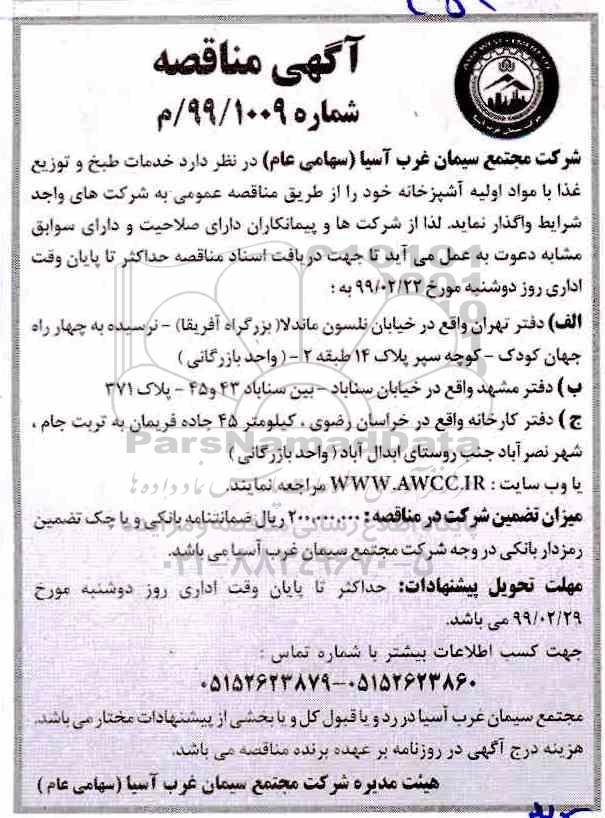 آگهی مناقصه
شماره ۹۹/۱۰۰۹/م
شرکت مجتمع سیمان غرب آسیا (سهامی عام) در نظر دارد خدمات طبخ و توزیع
غذا با مواد اولیه آشپزخانه خود را از طریق مناقصه عمومی به شرکت های واجد
شرایط واگذار نماید. لذا از شرکت ها و پیمانکاران دارای صلاحیت و دارای سوابق
مشابه دعوت به عمل می آید تا جهت دریافت اسناد مناقصه حداکثر تا پایان وقت
اداری روز دوشنبه مورخ ۹۹/۰۲/۲۲ به :
الف) دفتر تهران واقع در خیابان نلسون ماندلا( بزرگراه آفریقا) - نرسیده به چهار راه
جهان کودک - کوچه سپر پلاک ۱۴ طبقه ۲ - ( واحد بازرگانی )
ب ) دفتر مشهد واقع در خیابان سناباد - بین سناباد ۴۳ و۴۵ - پلاک ۳۷۱
ج ) دفتر کارخانه واقع در خراسان رضوی ، کیلومتر ۴۵ جاده فریمان به تربت جام ،
شهر نصرآباد جنب روستای ابدال آباد ( واحد بازرگانی )
یا وب سایت : WWW.AWCC.IR مراجعه نمایند.
میزان تضمین شرکت در مناقصه : ۲۰۰,۰۰۰,۰۰۰ ریال ضمانتنامه بانکی و یا چک تضمین
رمزدار بانکی در وجه شرکت مجتمع سیمان غرب آسیا می باشد.
مهلت تحویل پیشنهادات: حداکثر تا پایان وقت اداری روز دوشنبه مورخ
۹۹/۰۲/۲۹ می باشد.
جهت کسب اطلاعات بیشتر با شماره تماس :
۰۵۱۵۲۶۲۳۸۷۹-۰۵۱۵۲۶۲۳۸۶۰
مجتمع سیمان غرب آسیا در رد و یا قبول کل و یا بخشی از پیشنهادات مختار می باشد.
هزینه درج آگهی در روزنامه بر عهده برنده مناقصه می باشد.
هیئت مدیره شرکت مجتمع سیمان غرب آسیا (سهامی عام )
ParsNamadData
۰۲۱-۸۸۳۴۹۶۷۰-۵